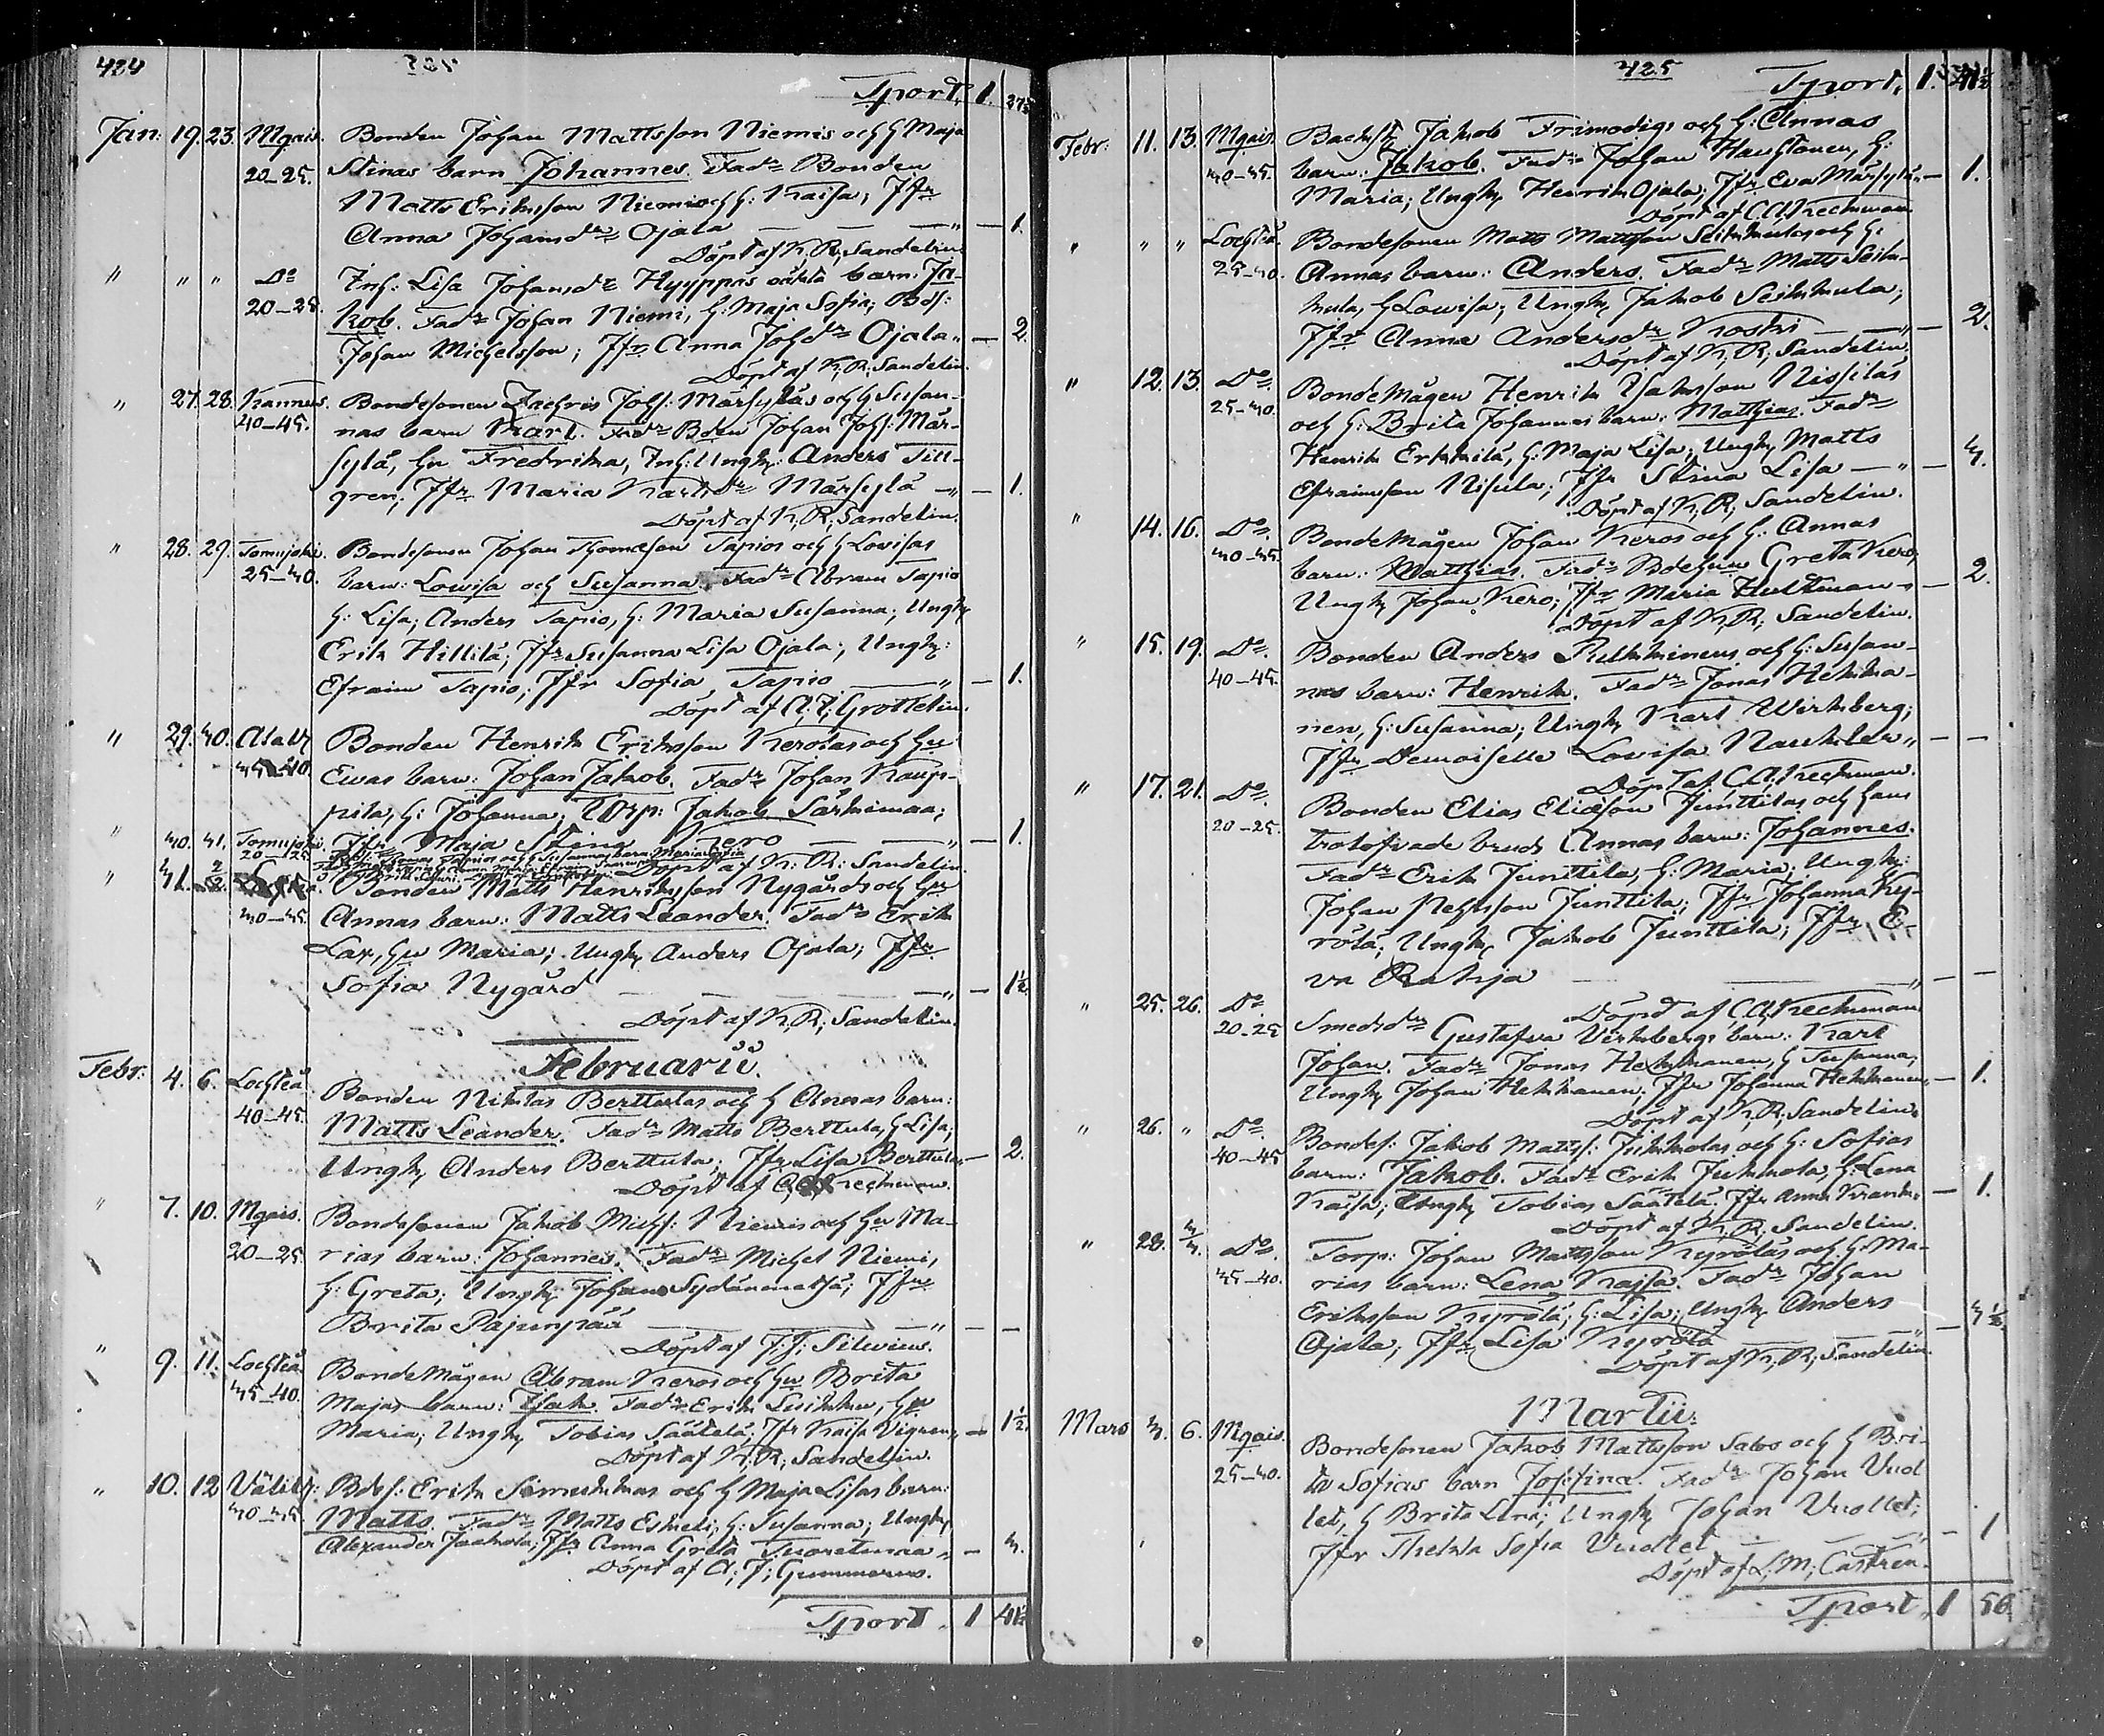 424
Tport, 1. 27½
Jan: 19. 23. Mgais. Bonden Johan Mattsson Niemis och h Maja
20-25. Stinas barn Johannes. Fadr Bonden
Matts Eriksson Niemi och h: Kaisa; Jfr
Anna Johansdr Ojala — — " — 1.
Döpt af K. R; Sandelin.
" " " Do Inh: Lisa Johansdr Hyyppäs oäkta barn: Ja-
20-25. kob. Fadr Johan Niemi, h: Maja Sofia; Bdss:
Johan Michelsson; Jfr Anna Johdr Ojala " — 2.
Döpt af K. R; Sandelin.
" 27. 28. Kannus. Bondesonen Zachris Johs: Märsyläs och h Susan-
40-45. nas barn Karl. Fadr Bden Johan Johs: Mär-
sylä, hu Fredrika, Inh: Ungk: Anders Till-
gren; Jfr Maria Karlsdr Märsylä " — 1.
Döpt af K. R; Sandelin.
" 28. 29. Tomujoki. Bondesonen Johan Thomasson Tapios och h Lovisas
25-30. barn: Lovisa och Susanna. Fadr Abram Tapio
h: Lisa; Anders Tapio, h: Maria Susanna; Ungk
Erik Hillilä; Jfr Susanna Lisa Ojala; Ungk:
Efraim Tapio; Jfr Sofia Tapio — " — 1.
Döpt af A: F: Grottelin.
" 29. 30. Alav Bonden Henrik Eriksson Kerolas och hu
35-40 Evas barn: Johan Jakob. Fadr Johan Kaup-
pila, h: Johanna; Torp: Jakob Särkimaa;
" 30. 31. Tomujoki. Jfr Maja Stina Kero — — " — 1.
20-25. Döpt af K: R: Sandelin.
" 31. 2/2 Bonden Matts Henriksson Nygårds och hu
30-35. Annas barn: Matts Leander. Fadr Erik
Lax, hu Maria; Ungk Anders Ojala; Jfr
Sofia Nygård — — " — 1½
Döpt af K. R; Sandelin.
Februarii.
Febr: 4. 6. Lochteå Bonden Niklas Berttulas och h Annas barn:
40-45. Matts Leander. Fadr Matts Berttula, h Lisa;
Ungk Anders Berttula; Jfr Lisa Berttula " — 2.
Döpt af C. A. Keckman.
" 7. 10. Mgais. Bondesonen Jakob Michs: Niemis och hu Ma-
20-25 rias barn: Johannes. Fadr Michel Niemi,
h: Greta; Ungk Johan Sydänmetsä; Jfr
Brita Pajunpää — — " — —
Döpt af J: J: Silvius.
" 9. 11. Lochteå Bondemågen Abram Keros och hu Brita
35-40. Majas barn: Isak. Fadr Erik Luikku, hu
Maria; Ungk Tobias Säätelä; Jfr Kaisa Vigren " — 1½.
Döpt af K. R; Sandelin.
" 10. 12 Välik: Bdes: Erik Simukkas och h Maja Lisas barn:
30-35. Matts. Fadr Matts Eskeli, h: Susanna; Ungk
Alexander Jaakola; Jfr Anna Greta Tuoretmaa " — 3.
Döpt af A; F; Gummerus.
Tport. 1 41½
425
Tport, 1. 41½
Febr: 11. 13. Mgais. Backst: Jakob Frimodigs och h: Annas
30-35. barn: Jakob. Fadr Johan Hautanen, h:
Maria; Ungk Henrik Ojala; Jfr Eva Märsylä " — 1.
Döpt af C. A. Keckman
" " " Lochteå. Bondesonen Matts Mattsson Seikkulas och h:
25-30. Annas barn: Anders. Fadr Matts Seik-
kula, h Lovisa; Ungk Jakob Seikkula;
Jfr Anna Andersdr Koski — " — 2.
Döpt af K. R; Sandelin.
" 12. 13. Do. Bondemågen Henrik Isaksson Nissiläs
25-30. och h: Brita Johannas barn: Matthias. Fadr
Henrik Erkkilä, h: Maja Lisa; Ungk Matts
Efraimsson Nisula; Jfr Stina Lisa — " — 3.
Döpt af K. R; Sandelin.
" 14. 16. Do. Bondemågen Johan Keros och h: Annas
30-35. barn: Matthias. Fadr Bdehu Greta Kero,
Ungk Johan Kero; Jfr Maria Hultman " — 2.
Döpt af K. R; Sandelin.
" 15. 19. Do. Bonden Anders Pulkkinens och h: Susan-
40-45. nas barn: Henrik. Fadr Jonas Hekka-
nen, h: Susanna; Ungk Karl Wirkberg;
Jfr Demoiselle Lovisa Nauckler " — —
Döpt af C. A. Keckman.
" 17. 21. Do. Bonden Elias Eliasson Junttilas och hans
20-25. trolofvade brud Annas barn: Johannes.
Fadr Erik Junttila, h: Maria; Ungk:
Johan Pehrsson Junttila; Jfr Johanna Ky-
rölä; Ungk Jakob Junttila; Jfr E-
va Rahja — " — —
Döpt af C. A. Keckman
" 25. 26. Do Smedsdr Gustafva Virkbergs barn: Karl
20-25 Johan. Fadr Jonas Hekkanen, h Susanna;
Ungk Johan Hekkanen; Jfr Johanna Hekkanen " — 1.
Döpt af K. R; Sandelin.
" 26. " Do. Bondes: Jakob Matts: Jukkolas och h: Sofias
40-45 barn: Jakob. Fadr Erik Jukkola, h: Lena
Kajsa; Ungk Tobias Säätelä; Jfr Anna Krank " — 1.
Döpt af K. R; Sandelin.
" 28. 3/3. Do. Torp: Johan Mattsson Kyröläs och h: Ma-
35-40. rias barn: Lena Kajsa. Fadr Johan
Eriksson Kyrölä, h: Lisa; Ungk Anders
Ojala; Jfr Lisa Kyrölä — " — 3½.
Döpt af K. R; Sandelin.
Martii.
Mars 3. 6. Mgais. Bondesonen Jakob Mattsson Salos och h Bri-
25-30. ta Sofias barn Josefina. Fadr Johan Vuol
let, h Brita Lena; Ungk Johan Vuollet;
Jfr Thekla Sofia Vuollet — " — 1
Döpt af L; M; Castrén.
Tport, 1 56